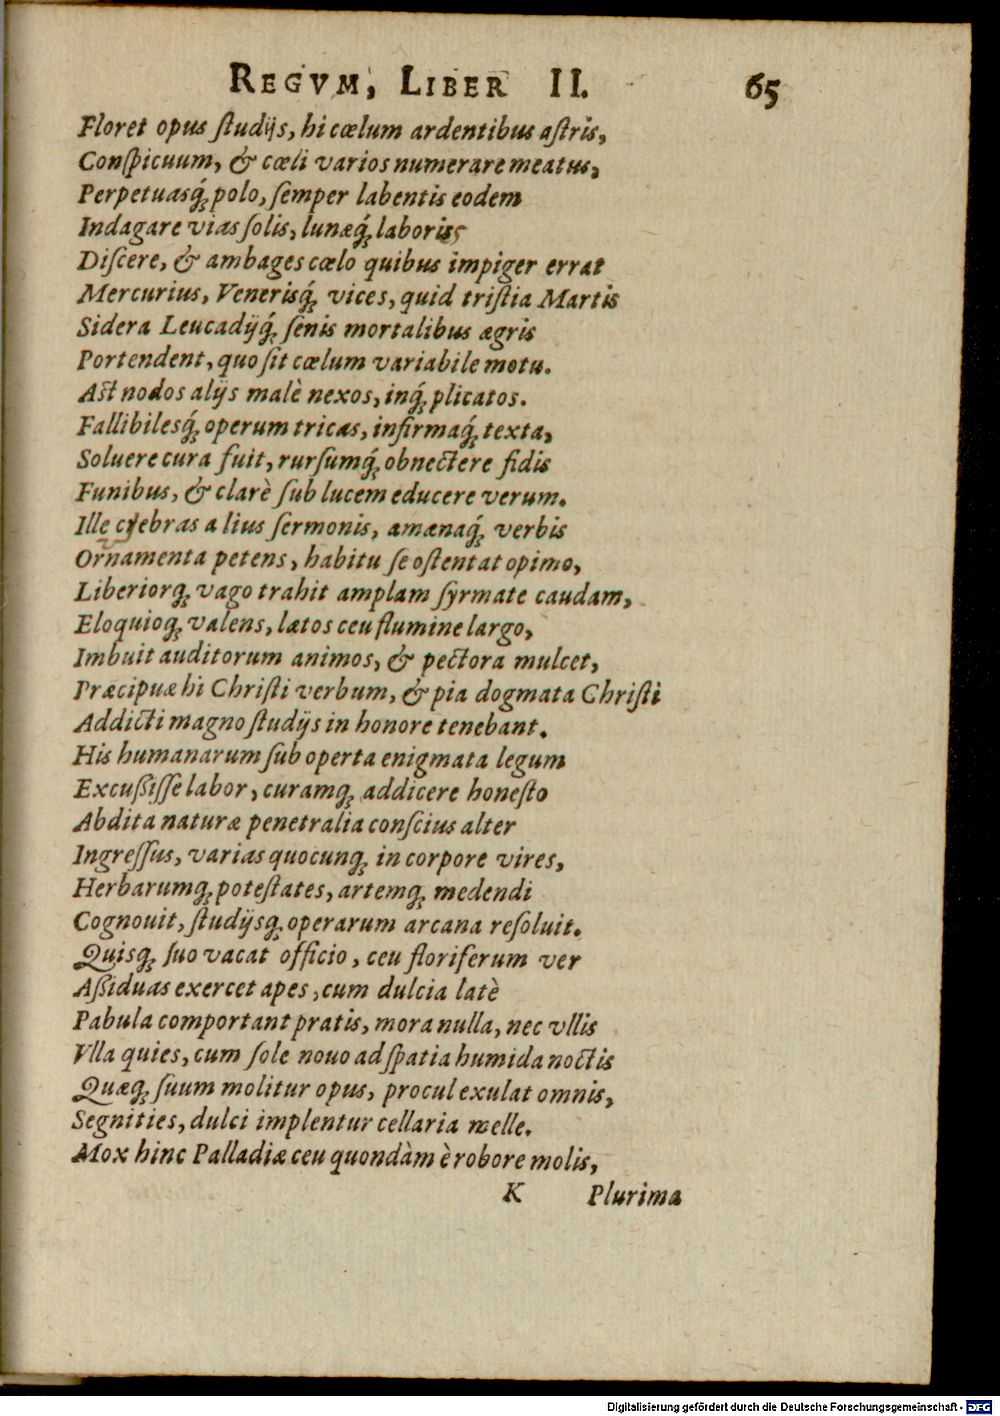 REGVM, LIBER II. 65
Floret opus ſtudijs, hi cœlum ardentibus aſtris,
Conſpicuum, & cœli varios numerare meatus,
Perpetuasq́; polo, ſemper labentis eodem
Indagare vias ſolis, lunæq́; laboris
Diſcere, & ambages cœlo quibus impiger errat
Mercurius, Venerisq́; vices, quid triſtia Martis
Sidera Leucadijq́; ſenis mortalibus ægris
Portendent, quo ſit cœlum variabile motu.
Aſt nodos alijs malè nexos, inq́; plicatos.
Fallibilesq́; operum tricas, infirmaq́; texta,
Soluere cura fuit, rurſumq́; obnectere fidis
Funibus, & clarè ſub lucem educere verum.
Ille crebras alius ſermonis, amœnaq́; verbis
Ornamenta petens, habitu ſe oſtentat opimo,
Liberiorq; vago trahit amplam ſyrmate caudam,
Eloquioq; valens, lætos ceu flumine largo,
Imbuit auditorum animos, & pectora mulcet,
Præcipuæ hi Chriſti verbum, & pia dogmata Chriſti
Addicti magno ſtudijs in honore tenebant.
His humanarum ſub operta enigmata legum
Excußiſſe labor, curamq; addicere honeſto
Abdita naturæ penetralia conſcius alter
Ingreſſus, varias quocunq; in corpore vires,
Herbarumq; poteſtates, artemq; medendi
Cognouit, ſtudijsq; operarum arcana reſoluit.
Quisq; ſuo vacat officio, ceu floriferum ver
Aßiduas exercet apes, cum dulcia latè
Pabula comportant pratis, mora nulla, nec vllis
Vlla quies, cum ſole nouo ad ſpatia humida noctis
Quæq; ſuum molitur opus, procul exulat omnis,
Segnities, dulci implentur cellaria melle.
Mox hinc Palladiæ ceu quondàm è robore molis,
K Plurima
Digitalisierung gefördert durch die Deutsche Forschungsgemeinschaft - DFG